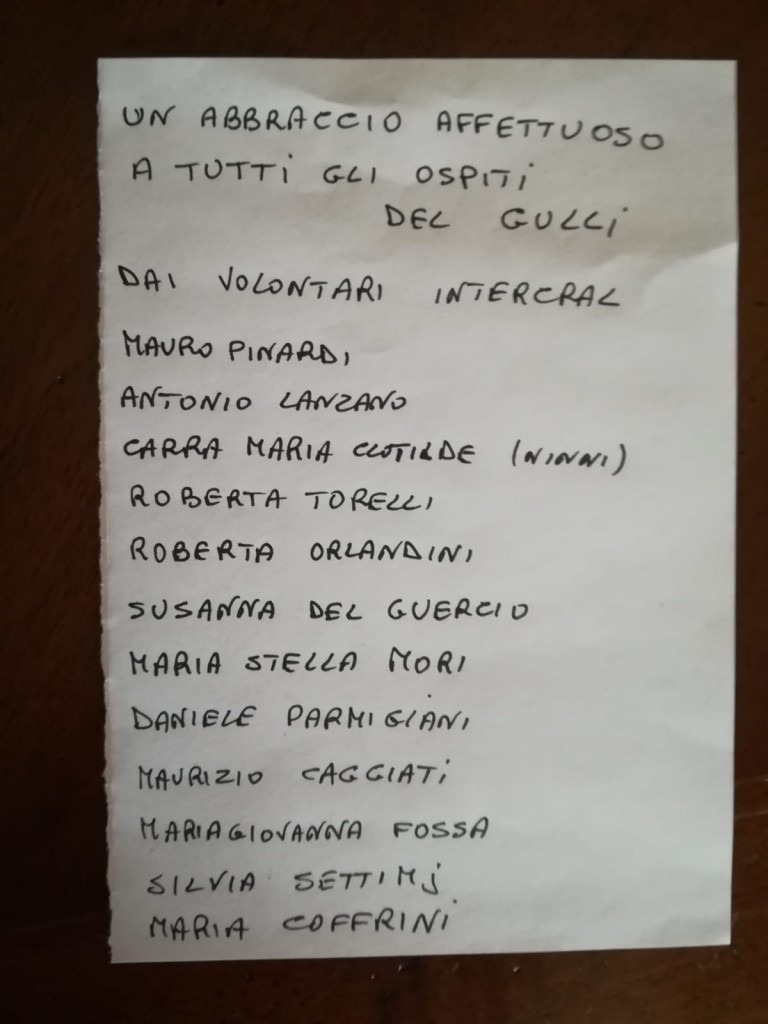 UN ABBRACCIO AFFETTUOSO
A TUTTI GLI OSPITI
DEL GULLI
DAI VOLONTARI INTERCRAL
MAURO PINARDI
ANTONIO LANZANO
CARRA MARIA CLOTILDE (NINNI)
ROBERTA TORELLI
ROBERTA ORLANDINI
SUSANNA DEL GUERCIO
MARIA STELLA MORI
DANIELE PARMIGIANI
MAURIZIO CAGGIATI
MARIAGIOVANNA FOSSA
SILVIA SETTIMj
MARIA COFFRINI